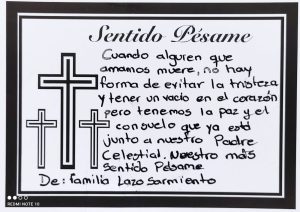 Sentido Pésame
Cuando alguien que
amamos muere, no hay
forma de evitar la tristeza
y tener un vacío en el corazón
pero tenemos la paz y el
consuelo que ya está
junto a nuestro Padre
Celestial. Nuestro más
sentido Pésame
De: familia Lazo Sarmiento
REDMI NOTE 10